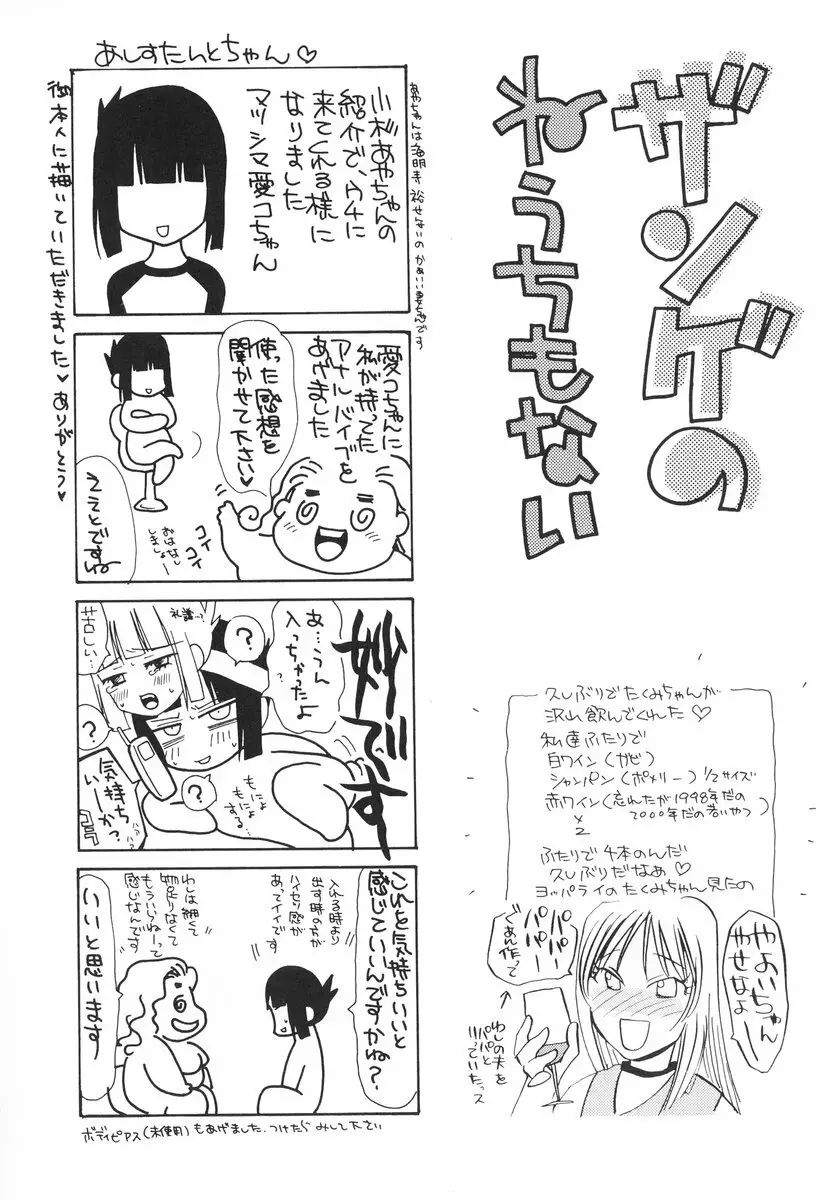 ザンゲの
ねうちもない
久しぶりでたくみちゃんが
沢山飲んでくれた♡
私達ふたりで
白ワイン（ガビ）
シャンパン（ポメリー）1/2サイズ
赤ワイン（忘れたが1998年だの
2000年だの若いやつ）
×2
ふたりで4本のんだ
久しぶりだなぁ♡
ヨッパライのたくみちゃん見たの
やよいちゃん
やせなよー
パパー
パパー
ごはん作って
わしの夫を
パパと
いっていたっス
あしすたんとちゃん♡
小杉あやちゃんの
紹介で、ウチに
来てくれる様に
なりました
マツシマ愛コちゃん
御本人に描いていただきました♥ありがとう♥
愛コちゃんに
私が持ってた
アナルバイブを
あげました
使った感想を
聞かせて下さい♥
コイ
コイ
おはなし
しましょー
ええとですね
妙です
あ…うん
入っちゃったよ
？
？
？
苦しい…
もにょ
もにょ
する…
気持ち
いーか？
コラ
ハァ
ハァ
これを気持ちいいと
感じていいんですかね？
入れる時より
出す時の方が
ハイセツ感が
あってイイです
わしは細くて
物足りなくて
もういらねーって
感じなんです
いいと思います
ボディピアス（未使用）もあげました．つけたら みして下さい